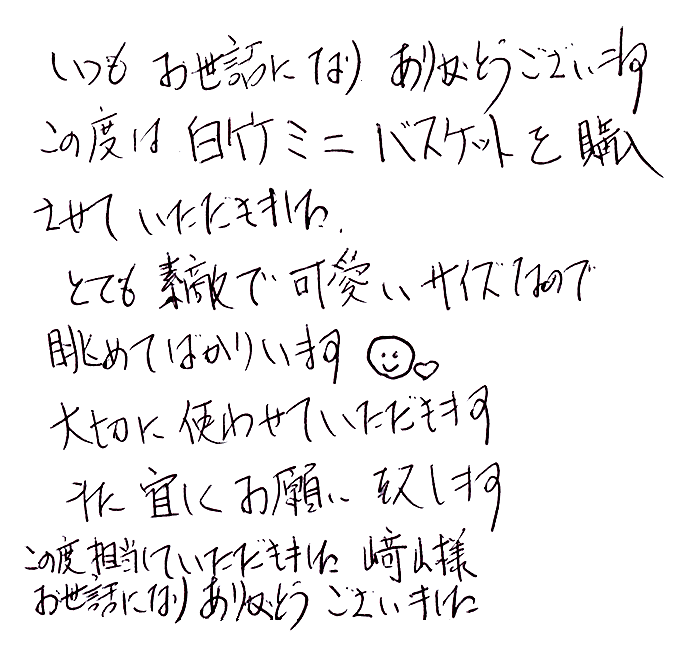 いつも お世話になり ありがとうございます
この度は 白竹ミニ バスケットを 購入
させて いただきました.
とても 素敵で 可愛い サイズなので
眺めてばかりいます
大切に 使わせていただきます
また 宜しく お願い 致します
この度 担当していただきました 﨑山様
お世話になり ありがとう ございました